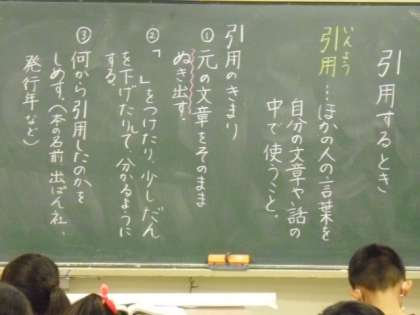 引用するとき
いんよう
引用…ほかの人の言葉を
自分の文章や話の
中で使うこと。
引用のきまり
①元の文章をそのまま
ぬき出す。
②「 」をつけたり、少しだん
を下げたりして、分かるように
する。
③何から引用したのかを
しめす。(本の名前、出ばん社、
発行年など)